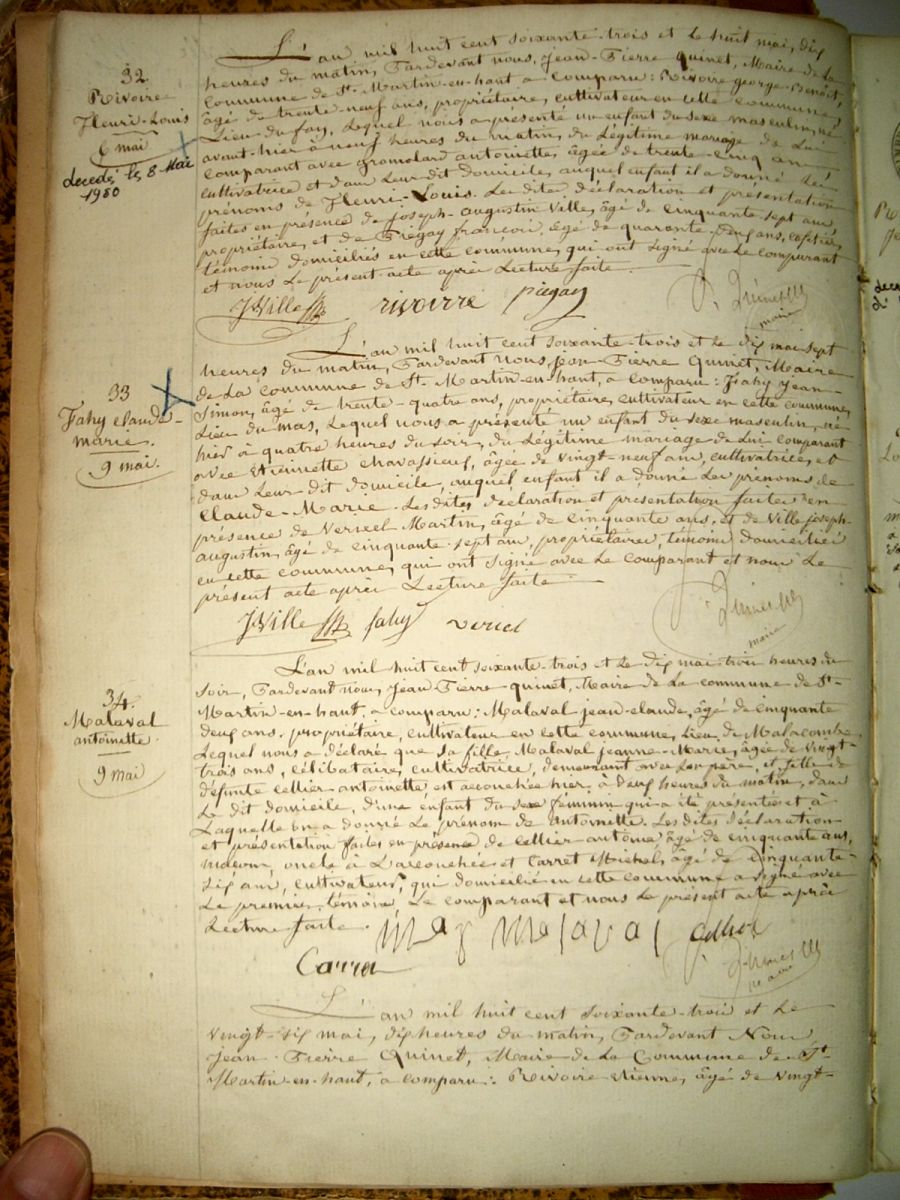 32
Rivoire
Fleuri-Louis
6 mai
decedé le 8 Mai
1950
L'an mil huit cent soixante-trois et le huit mai, dix
heures du matin, Pardevant nous, Jean-Pierre Quinet, Maire de la
Commune de St-Martin-en-haut a comparu: Rivoire george-Benoit,
âgé de trente-neuf ans, propriétaire, cultivateur en cette commune,
Lieu du fay, Lequel nous a présenté un enfant du sexe masculin, né
avant-hier à neuf heures du matin, du Légitime mariage de Lui
comparant avec Gromolard antoinette, âgée de trente-cinq ans
cultivatrice et dans Leur dit domicile, auquel enfant il a donné Les
prénoms de Fleuri-Louis. Les dites déclaration et présentation
faites en présence de Joseph-augustin Ville, âgé de cinquante sept ans
propriétaire, et de Piégay francois, âgé de quarante-deux ans, cafetier,
témoins domiciliés en cette commune, qui ont signé avec Le comparant
et nous Le présent acte après Lecture faite.
JVille rivoirre piegay P. Quinet
maire
33
Fahy claude-
marie.
9 mai.
L'an mil huit cent soixante-trois et le dix mai sept
heures du matin, Pardevant nous, jean-Pierre Quinet, Maire
de La commune de St-Martin-en-haut, a comparu: Fahy Jean
Simon, âgé de trente-quatre ans, propriétaire, cultivateur en cette commune,
Lieu du mas, Lequel nous a présenté un enfant du sexe masculin, né
hier à quatre heures du soir, du Légitime mariage de Lui comparant
avec Etiennette chavassieux, âgée de vingt-neuf ans, cultivatrice, et
dans Leur dit domicile, auquel enfant il a donné Les prénoms de
Claude-Marie. Les dites déclaration et présentation faites en
présence de Verneel Martin, âgé de cinquante ans, et de Ville joseph-
augustin, âgé de cinquante sept ans, propriétaires, témoins domiciliés
en cette commune, qui ont signé avec Le comparant et nous Le
présent acte après Lecture faite.
JVille fahy P. Quinet
maire
34.
Malaval
antoinette.
9 mai
L'an mil huit cent soixante-trois et le dix mai trois heures du
soir, Pardevant nous, Jean Pierre quinet, Maire de La commune de St-
Martin-en-haut, a comparu: Malaval jean-claude, âgé de cinquante
deux ans, propriétaire, cultivateur en cette commune, Lieu de Malacombe,
Lequel nous a déclaré que sa fille, Malaval jeanne-Marie, âgée de vingt-
trois ans, célibataire, cultivatrice, demeurant avec son père, et fille de
défunte cellier antoinette est accouchée hier, à deux heures du matin, dans
Le dit domicile, d'une enfant du sexe féminin qui a été présentée et à
Laquelle on a donné Le prénom de antoinette. Les dites déclaration
et présentation faites en présence de cellier antoine âgé de cinquante ans,
maçon, oncle à L'accouchée et Carret Michel, âgé de cinquante-
six ans, cultivateur, qui domiciliés en cette commune a signé avec
Le premier témoin, Le comparant et nous Le présent acte après
Lecture faite. Malaval
Carret P. Quinet
maire
L'an mil huit cent soixante-trois et Le
vingt-six mai, dix heures du matin, Pardevant Nous
Jean-Pierre Quinet, Maire de La Commune de St
Martin-en-haut, a comparu: Rivoire etienne, âgé de vingt-